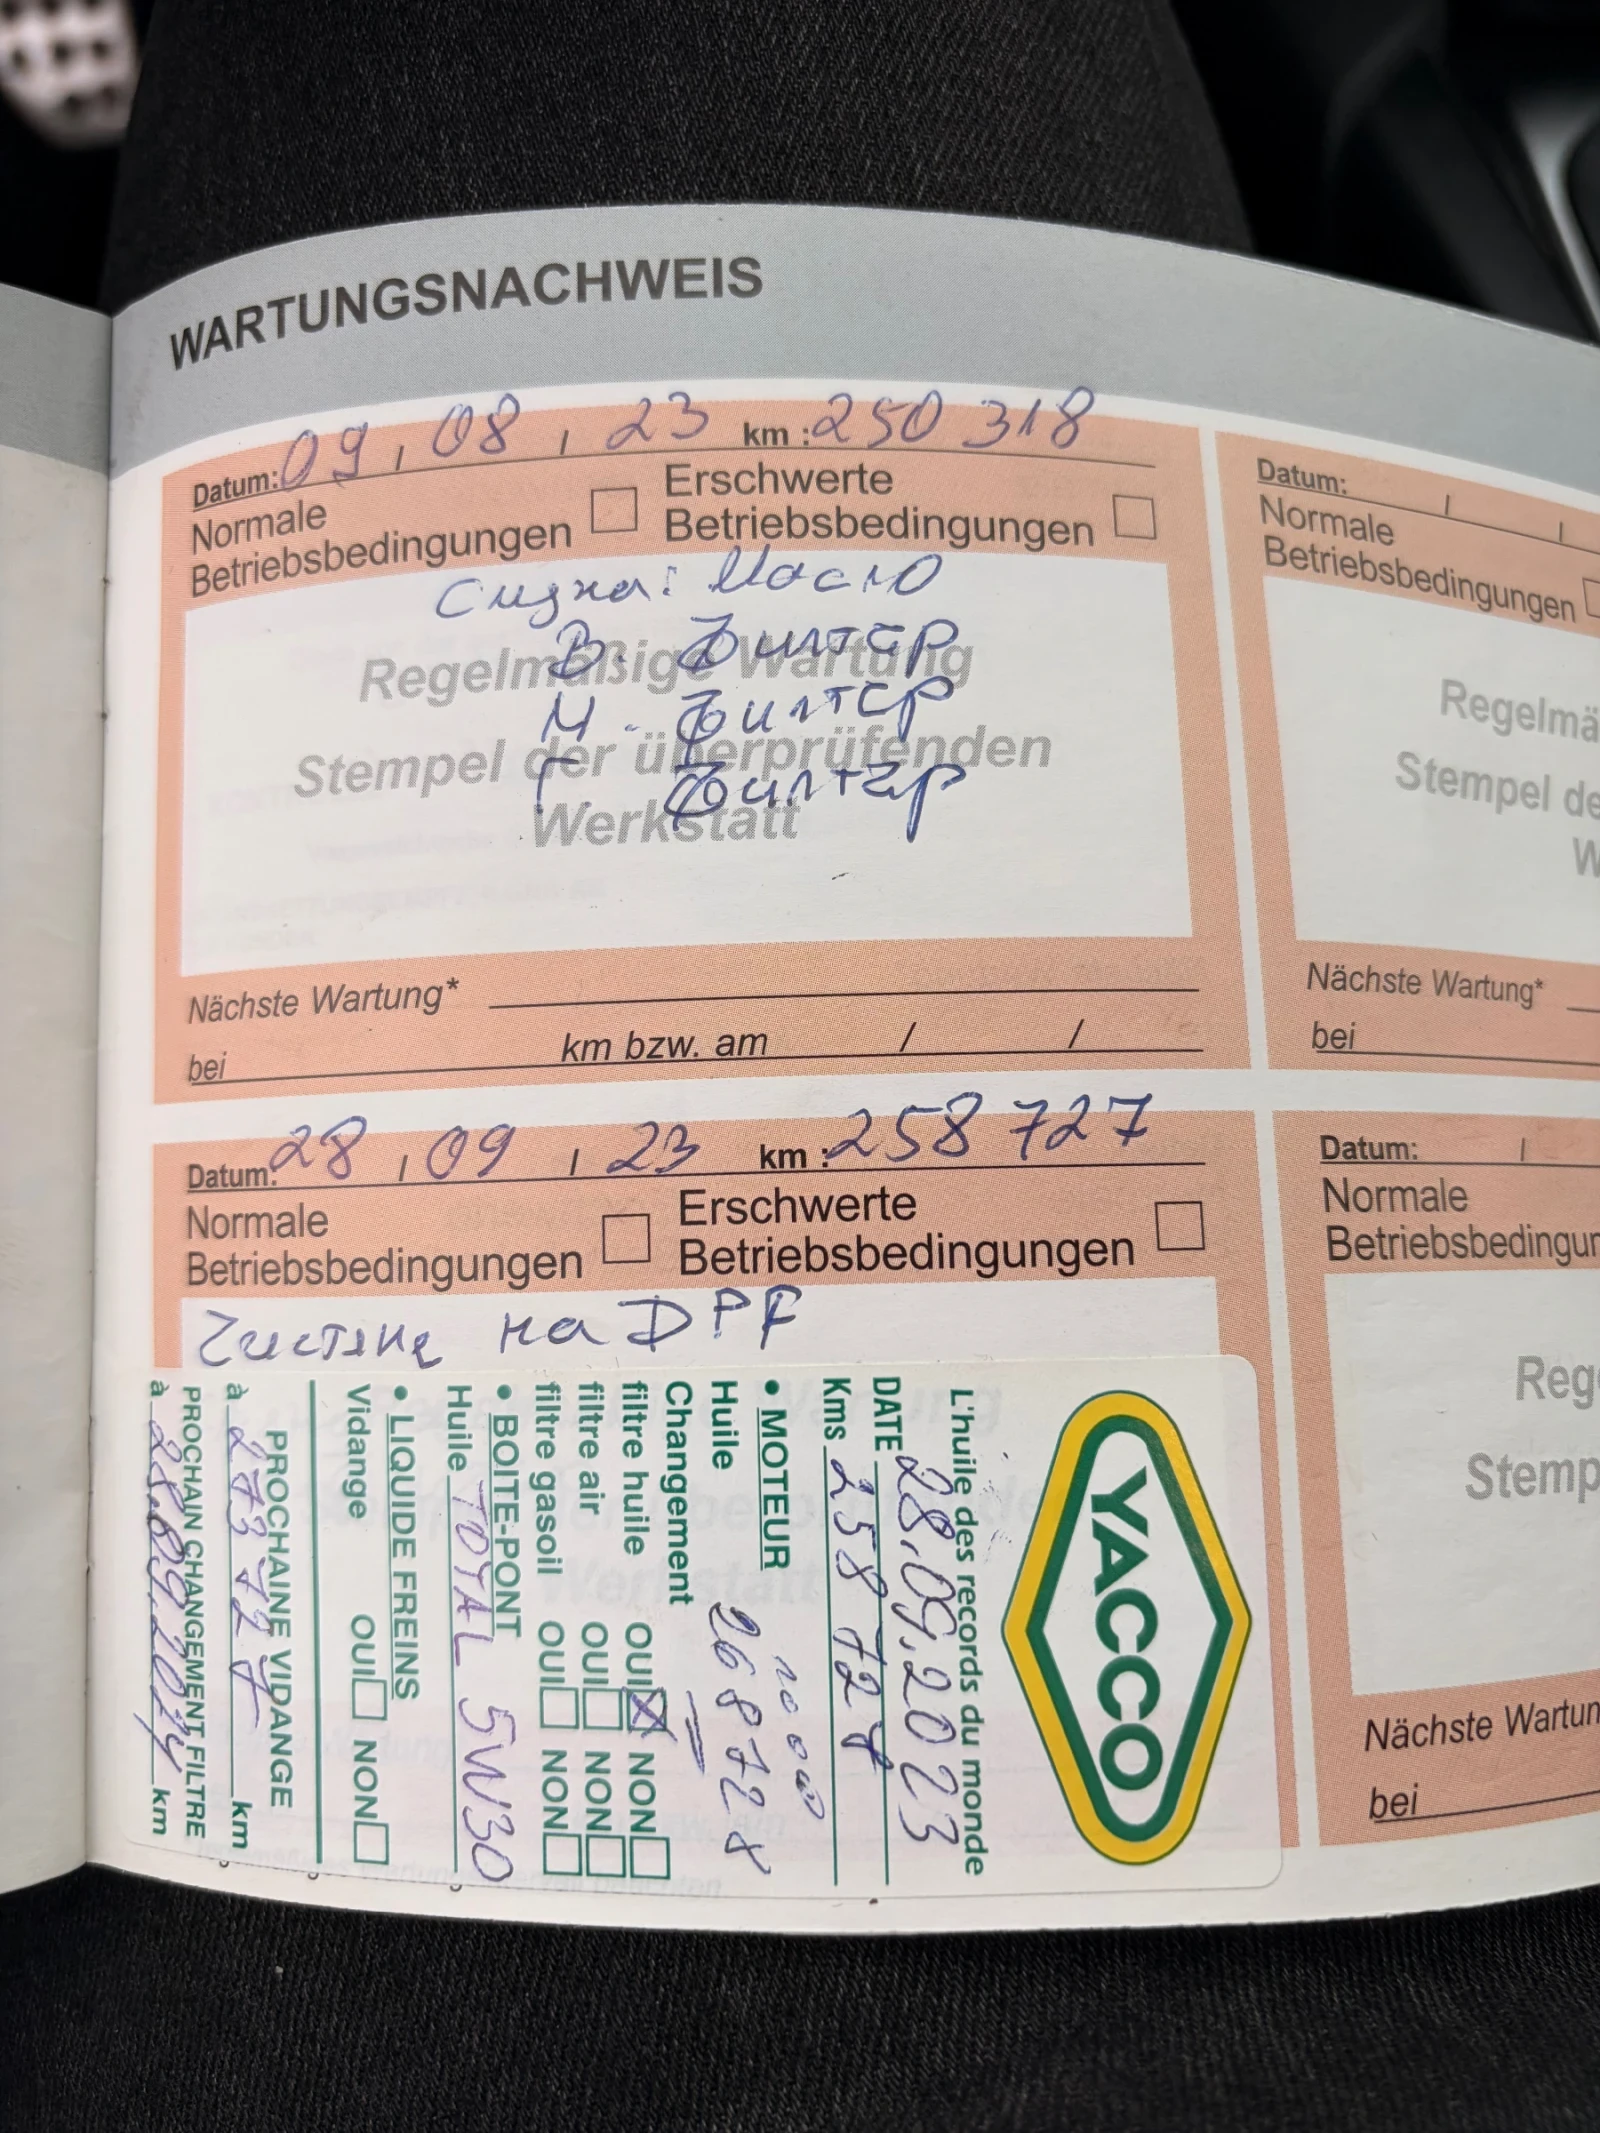 WARTUNGSNACHWEIS
Datum: 09 / 08 / 23 km : 250 318
Normale
Betriebsbedingungen
Erschwerte
Betriebsbedingungen
Смяна: Масло
В. Филтър
М. Филтър
Г. Филтър
Regelmäßige Wartung
Stempel der überprüfenden
Werkstatt
Nächste Wartung*
bei km bzw. am / /
Datum: 28 / 09 / 23 km : 258 727
Normale
Betriebsbedingungen
Erschwerte
Betriebsbedingungen
на DPF
YACCO
L'huile des records du monde
DATE 28.09.2023
Kms 258 728
• MOTEUR
Huile 268728
Changement
filtre huile OUI NON
filtre air OUI NON
filtre gasoil OUI NON
• BOITE-PONT
Huile TOTAL 5W30
• LIQUIDE FREINS
Vidange OUI NON
PROCHAINE VIDANGE
à 273727 km
PROCHAIN CHANGEMENT FILTRE
à km
Datum: / /
Normale
Betriebsbedingungen
Regelmä
Stempel de
W
Nächste Wartung*
bei
Datum: /
Normale
Betriebsbedingun
Reg
Stemp
Nächste Wartun
bei